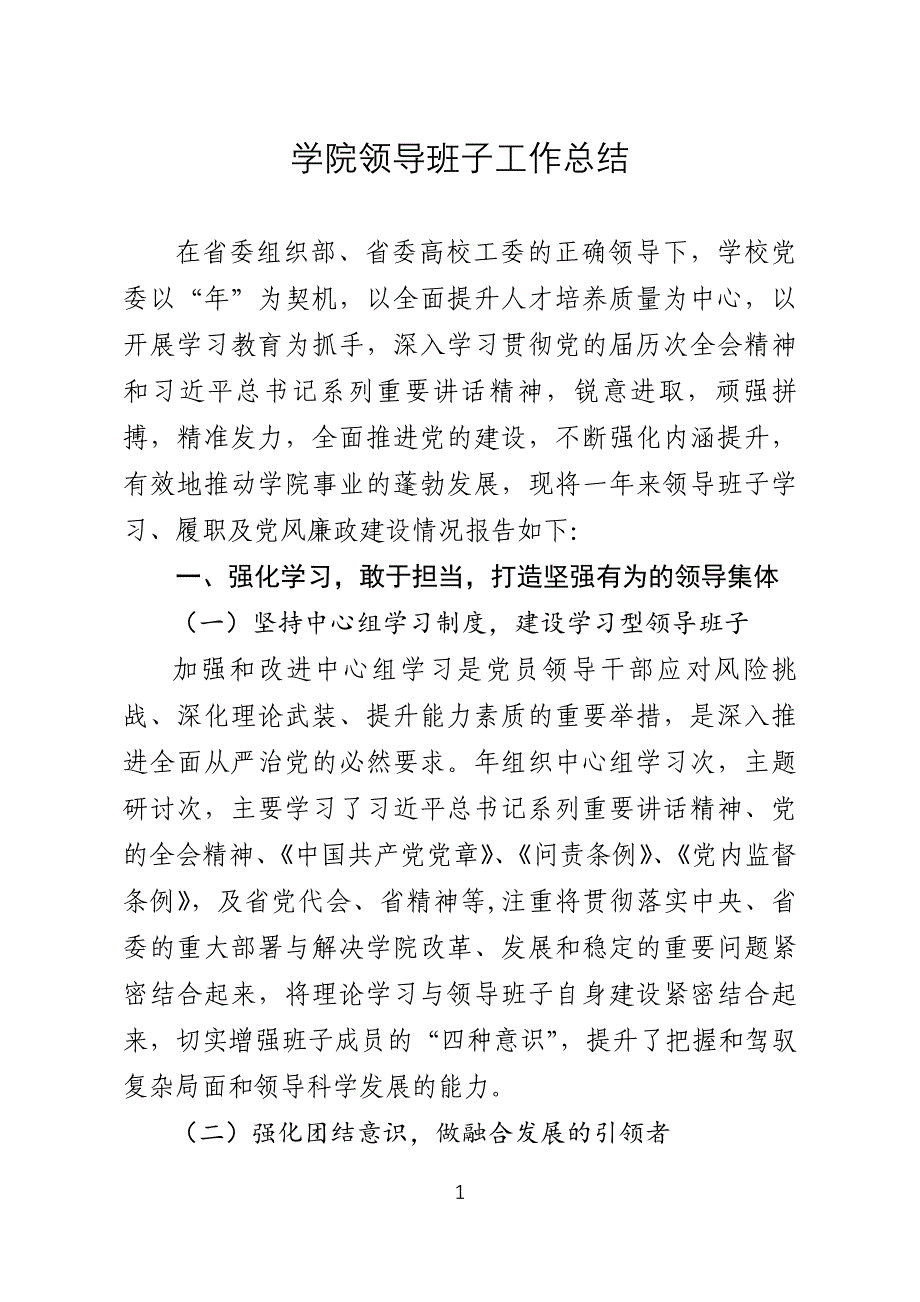 学院领导班子工作总结
在省委组织部、省委高校工委的正确领导下，学校党
委以“年”为契机，以全面提升人才培养质量为中心，以
开展学习教育为抓手，深入学习贯彻党的届历次全会精神
和习近平总书记系列重要讲话精神，锐意进取，顽强拼
搏，精准发力，全面推进党的建设，不断强化内涵提升，
有效地推动学院事业的蓬勃发展，现将一年来领导班子学
习、履职及党风廉政建设情况报告如下：
一、强化学习，敢于担当，打造坚强有为的领导集体
（一）坚持中心组学习制度，建设学习型领导班子
加强和改进中心组学习是党员领导干部应对风险挑
战、深化理论武装、提升能力素质的重要举措，是深入推
进全面从严治党的必然要求。年组织中心组学习次，主题
研讨次，主要学习了习近平总书记系列重要讲话精神、党
的全会精神、《中国共产党党章》、《问责条例》、《党内监督
条例》，及省党代会、省精神等,注重将贯彻落实中央、省
委的重大部署与解决学院改革、发展和稳定的重要问题紧
密结合起来，将理论学习与领导班子自身建设紧密结合起
来，切实增强班子成员的“四种意识”，提升了把握和驾驭
复杂局面和领导科学发展的能力。
（二）强化团结意识，做融合发展的引领者
1